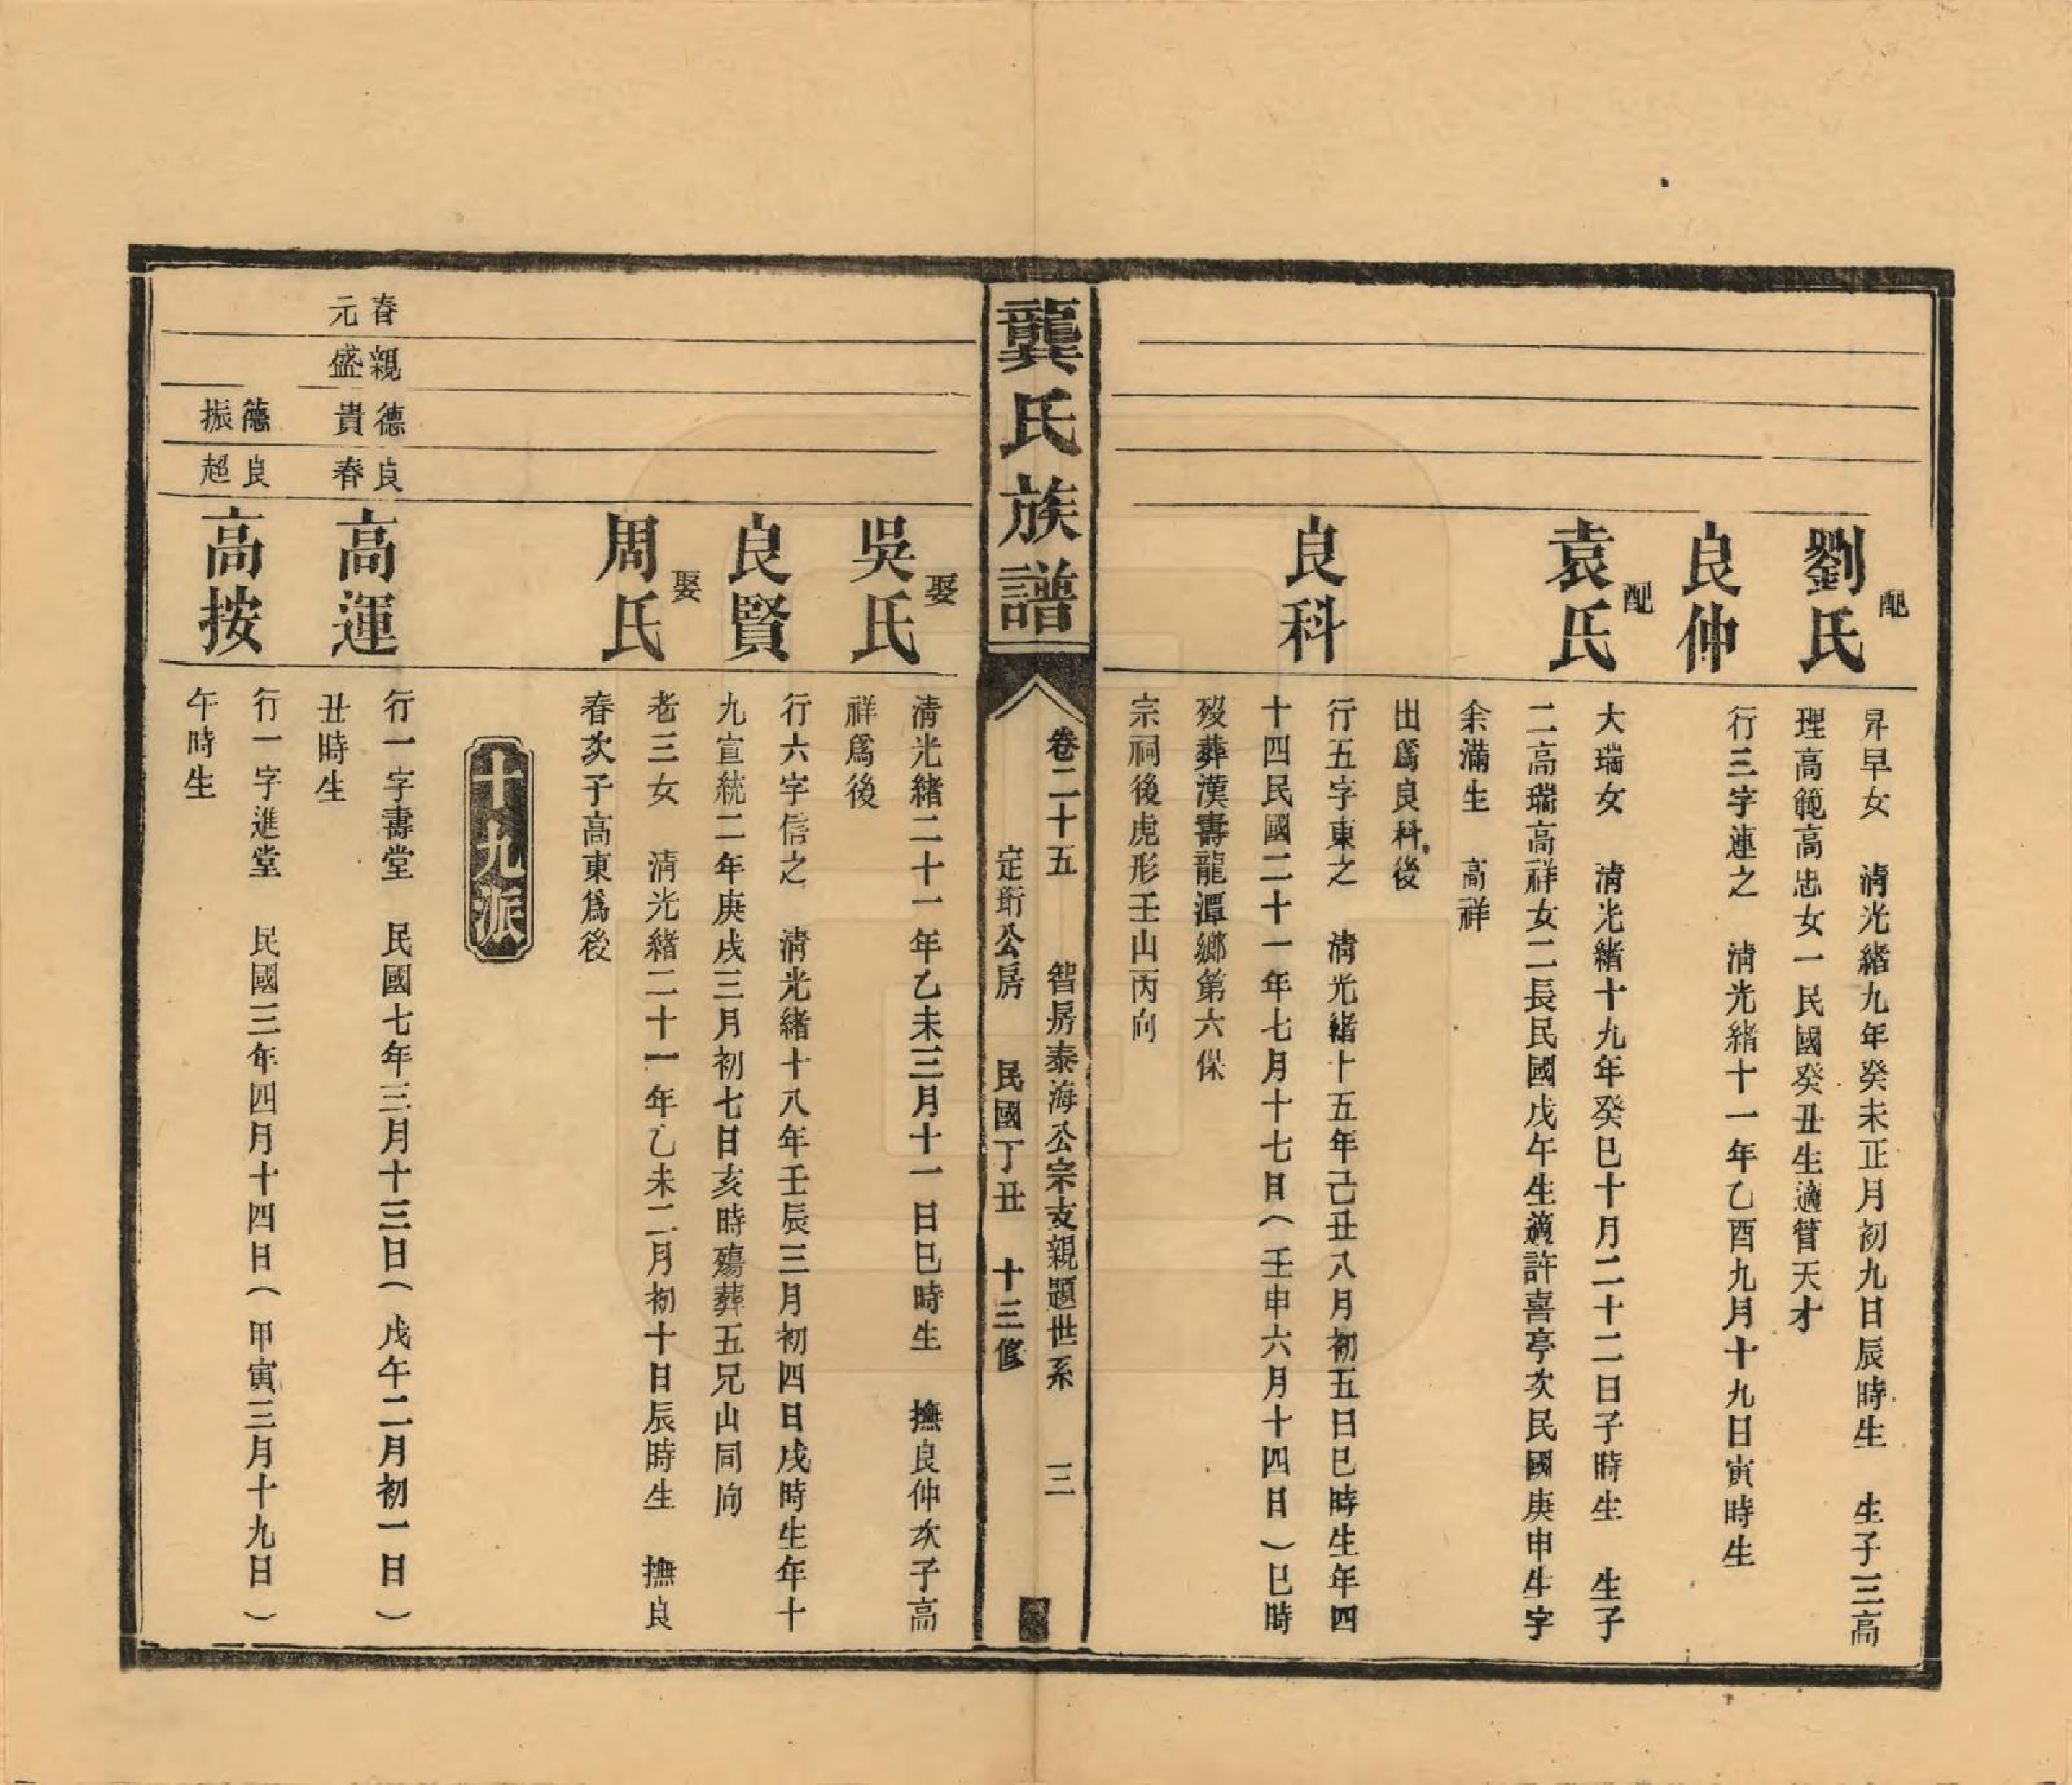 配
劉氏
昇早女　清光緒九年癸未正月初九日辰時生　生子三高
理高範高忠女一民國癸丑生適管天才
良仲
行三字連之　清光緒十一年乙酉九月十九日寅時生
配
袁氏
大瑞女　清光緒十九年癸巳十月二十二日子時生　生子
二高瑞高祥女二長民國戊午生適許喜亭次民國庚申生字
余滿生　高祥
出爲良科後
良科
行五字東之　清光緒十五年己丑八月初五日巳時生年四
十四民國二十一年七月十七日（壬申六月十四日）巳時
歿葬漢壽龍潭鄉第六保
宗祠後虎形壬山丙向
龔氏族譜
卷二十五　智房泰海公宗支親題世系　三
定珩公房　民國丁丑　十三修
娶
吳氏
清光緒二十一年乙未三月十一日巳時生　撫良仲次子高
祥爲後
良賢
行六字信之　清光緒十八年壬辰三月初四日戌時生年十
九宣統二年庚戌三月初七日亥時殤葬五兄山同向
娶
周氏
老三女　清光緒二十一年乙未二月初十日辰時生　撫良
春次子高東爲後
十九派
春元
親盛
德貴
良春
高運
行一字壽堂　民國七年三月十三日（戊午二月初一日）
丑時生
德振
良超
高按
行一字進堂　民國三年四月十四日（甲寅三月十九日）
午時生